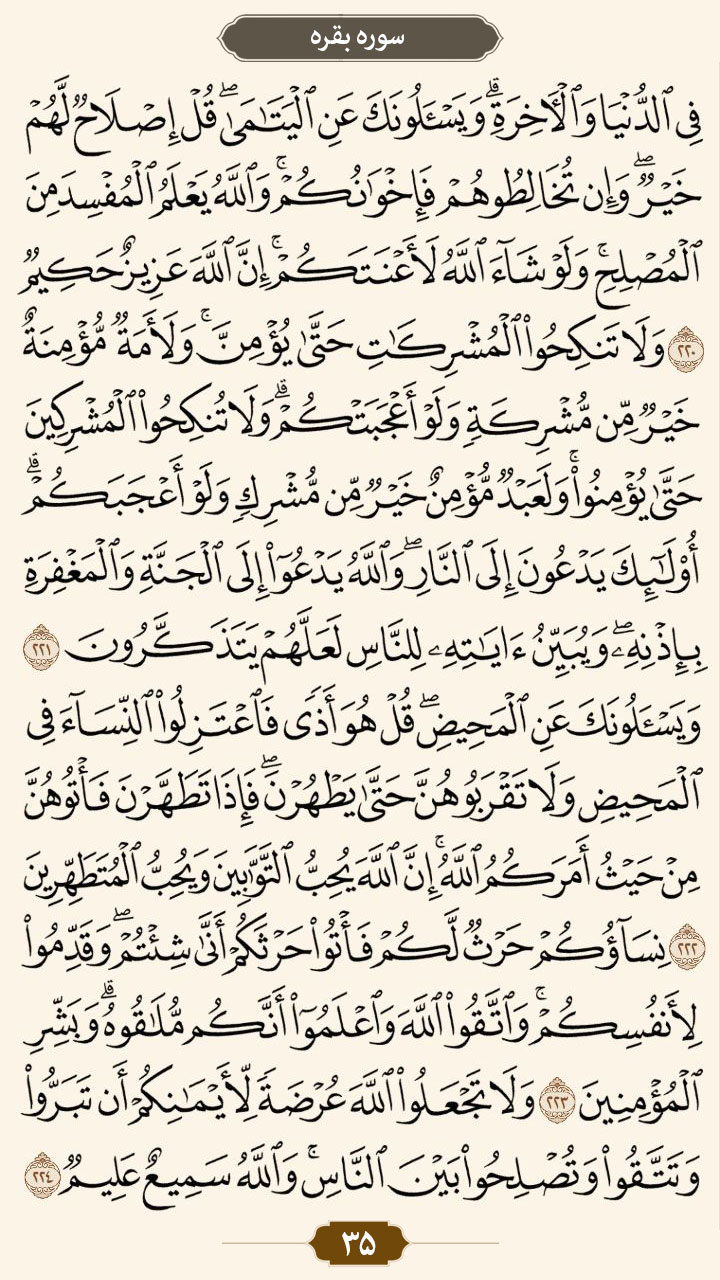 سوره بقره
فِي ٱلدُّنۡيَا وَٱلۡأٓخِرَةِۗ وَيَسۡـَٔلُونَكَ عَنِ ٱلۡيَتَٰمَىٰۖ قُلۡ إِصۡلَاحٞ لَّهُمۡ
خَيۡرٞۖ وَإِن تُخَالِطُوهُمۡ فَإِخۡوَٰنُكُمۡۚ وَٱللَّهُ يَعۡلَمُ ٱلۡمُفۡسِدَ مِنَ
ٱلۡمُصۡلِحِۚ وَلَوۡ شَآءَ ٱللَّهُ لَأَعۡنَتَكُمۡۚ إِنَّ ٱللَّهَ عَزِيزٌ حَكِيمٞ
٢٢٠ وَلَا تَنكِحُواْ ٱلۡمُشۡرِكَٰتِ حَتَّىٰ يُؤۡمِنَّۚ وَلَأَمَةٞ مُّؤۡمِنَةٌ
خَيۡرٞ مِّن مُّشۡرِكَةٖ وَلَوۡ أَعۡجَبَتۡكُمۡۗ وَلَا تُنكِحُواْ ٱلۡمُشۡرِكِينَ
حَتَّىٰ يُؤۡمِنُواْۚ وَلَعَبۡدٞ مُّؤۡمِنٌ خَيۡرٞ مِّن مُّشۡرِكٖ وَلَوۡ أَعۡجَبَكُمۡۗ
أُوْلَٰٓئِكَ يَدۡعُونَ إِلَى ٱلنَّارِۖ وَٱللَّهُ يَدۡعُوٓاْ إِلَى ٱلۡجَنَّةِ وَٱلۡمَغۡفِرَةِ
بِإِذۡنِهِۦۖ وَيُبَيِّنُ ءَايَٰتِهِۦ لِلنَّاسِ لَعَلَّهُمۡ يَتَذَكَّرُونَ ٢٢١
وَيَسۡـَٔلُونَكَ عَنِ ٱلۡمَحِيضِۖ قُلۡ هُوَ أَذٗى فَٱعۡتَزِلُواْ ٱلنِّسَآءَ فِي
ٱلۡمَحِيضِ وَلَا تَقۡرَبُوهُنَّ حَتَّىٰ يَطۡهُرۡنَۖ فَإِذَا تَطَهَّرۡنَ فَأۡتُوهُنَّ
مِنۡ حَيۡثُ أَمَرَكُمُ ٱللَّهُۚ إِنَّ ٱللَّهَ يُحِبُّ ٱلتَّوَّٰبِينَ وَيُحِبُّ ٱلۡمُتَطَهِّرِينَ
٢٢٢ نِسَآؤُكُمۡ حَرۡثٞ لَّكُمۡ فَأۡتُواْ حَرۡثَكُمۡ أَنَّىٰ شِئۡتُمۡۖ وَقَدِّمُواْ
لِأَنفُسِكُمۡۚ وَٱتَّقُواْ ٱللَّهَ وَٱعۡلَمُوٓاْ أَنَّكُم مُّلَٰقُوهُۗ وَبَشِّرِ
ٱلۡمُؤۡمِنِينَ ٢٢٣ وَلَا تَجۡعَلُواْ ٱللَّهَ عُرۡضَةٗ لِّأَيۡمَٰنِكُمۡ أَن تَبَرُّواْ
وَتَتَّقُواْ وَتُصۡلِحُواْ بَيۡنَ ٱلنَّاسِۚ وَٱللَّهُ سَمِيعٌ عَلِيمٞ ٢٢٤
۳۵